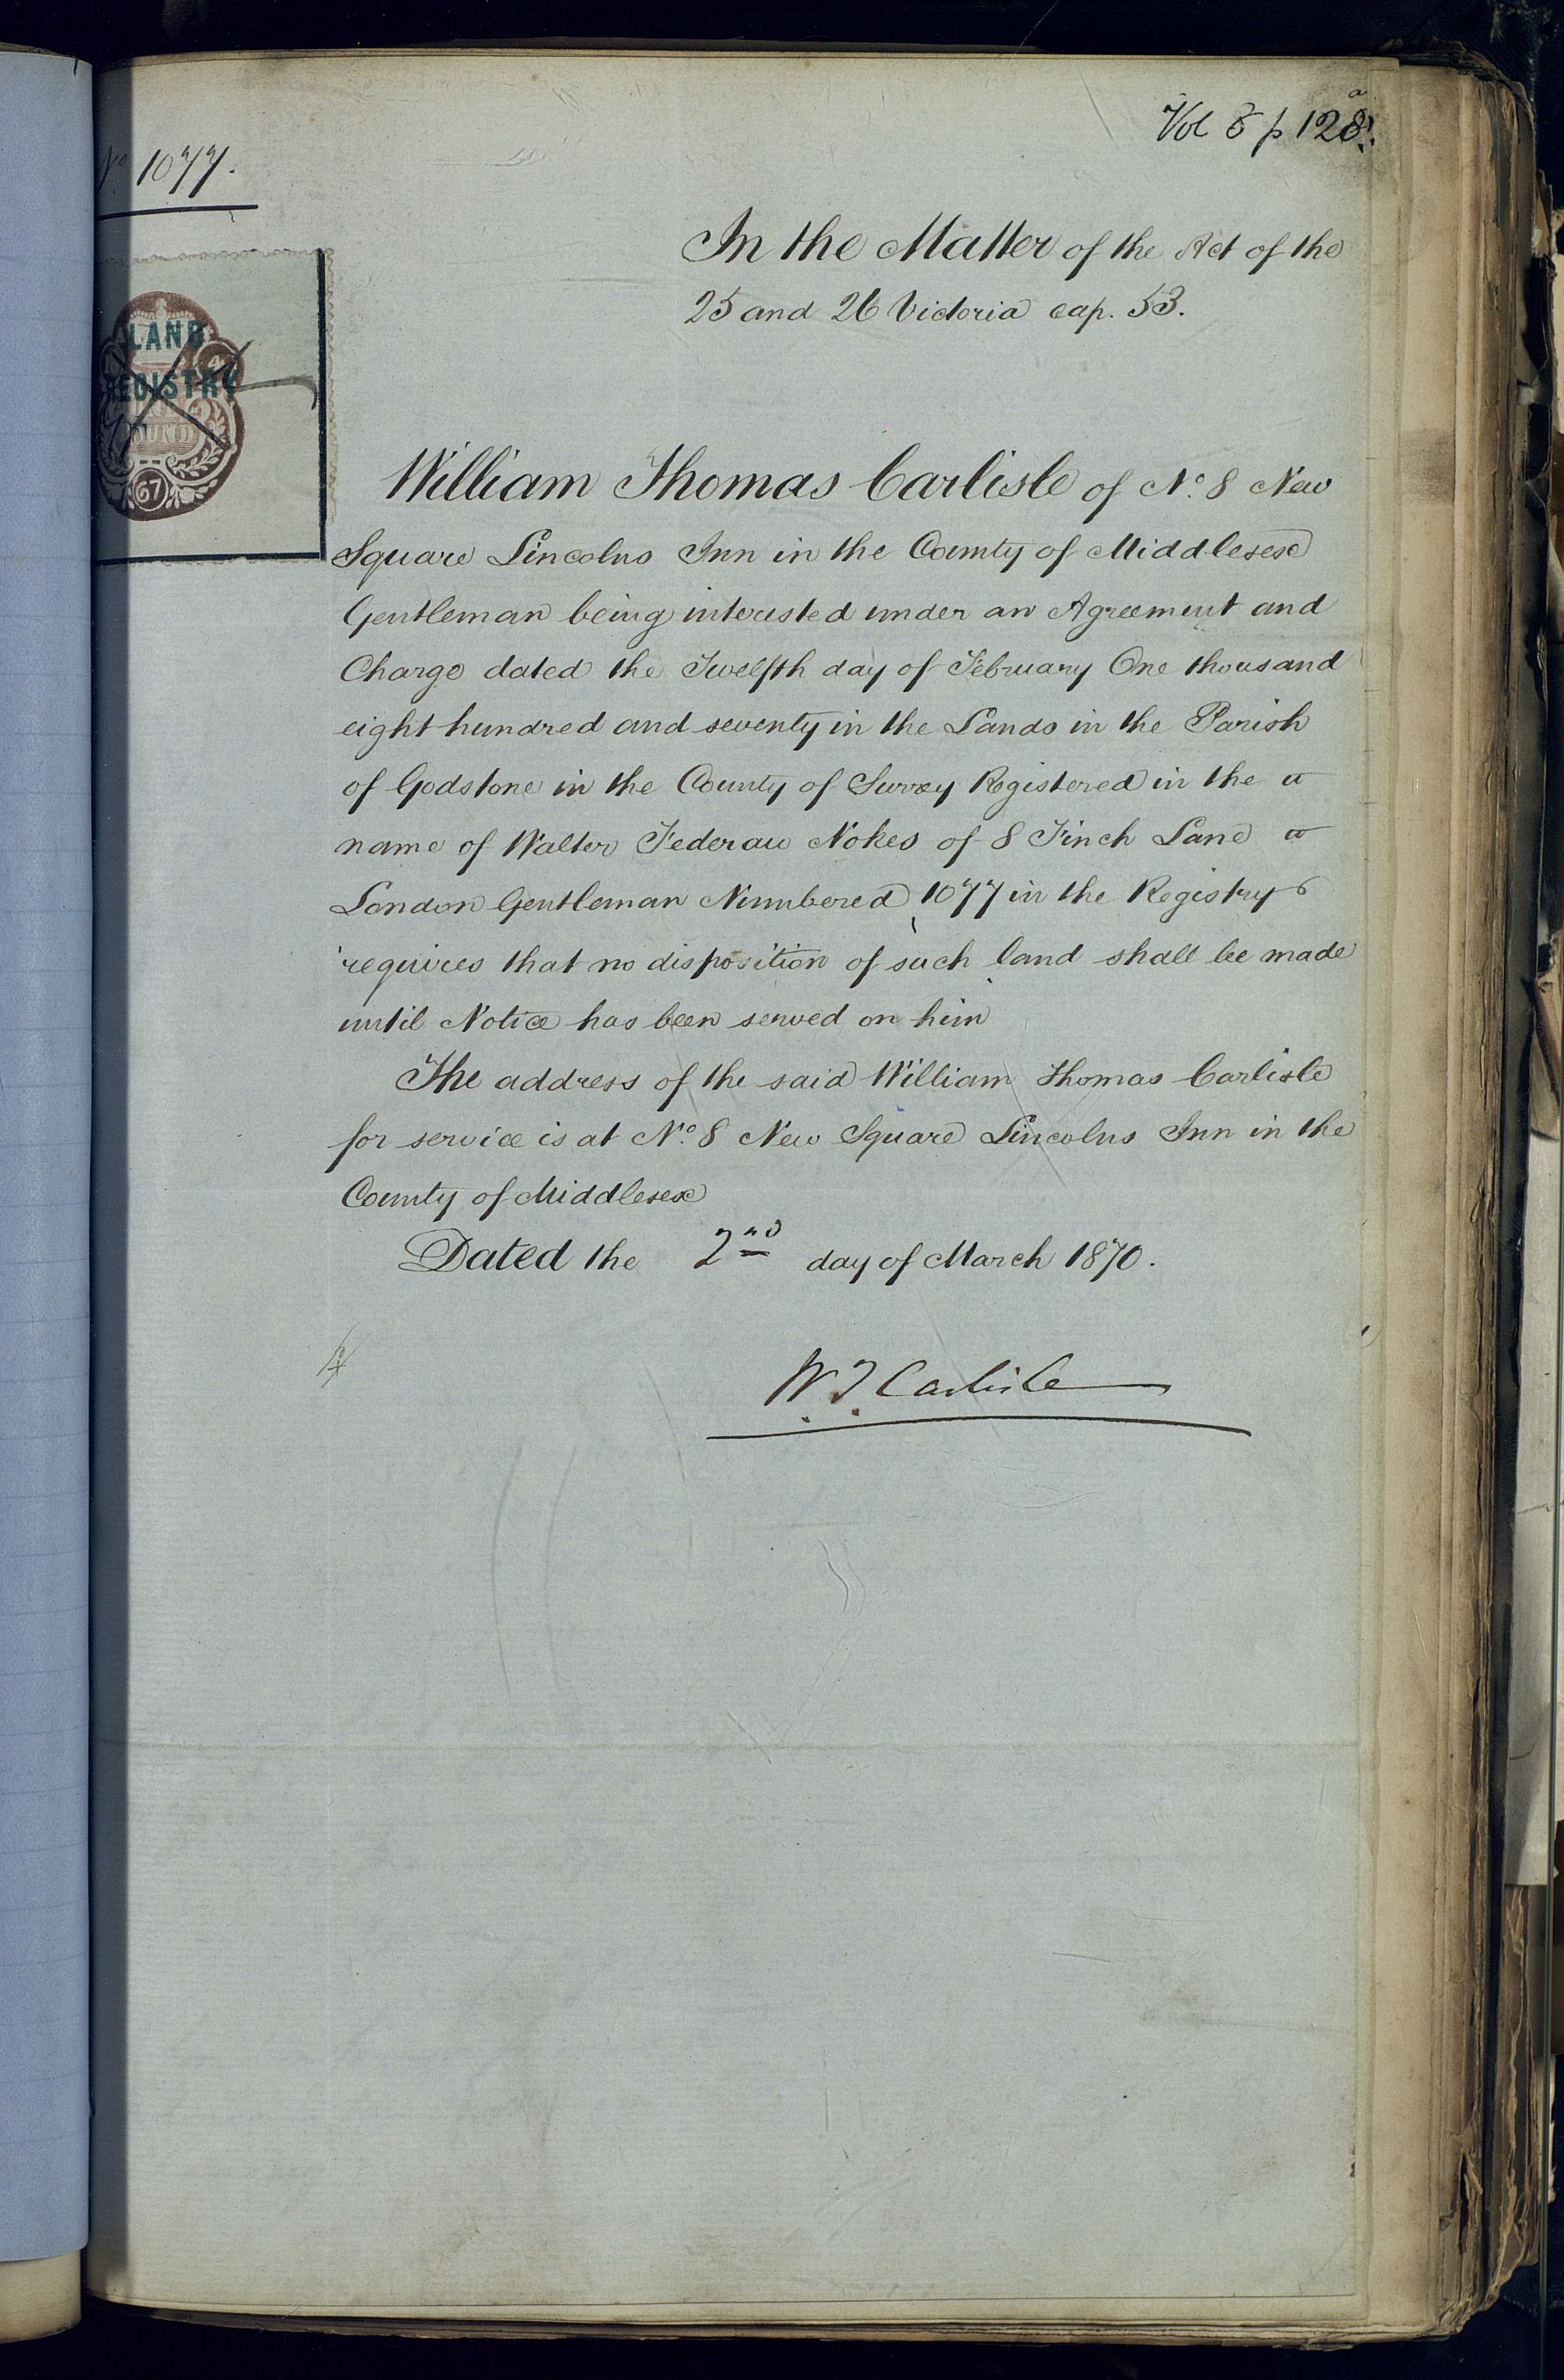 Vol 8 p 128a.
No 1077.
LAND
REGISTRY
POUND
67
In the Matter of the Act of the
25 and 26 Victoria cap. 53.
William Thomas Carlisle of No. 8 New
Square Lincolns Inn in the County of Middlesex
Gentleman being interested under an Agreement and
Charge dated the Twelfth day of February One thousand
eight hundred and seventy in the Lands in the Parish
of Godstone in the County of Surrey Registered in the
name of Walter Federau Nokes of 8 Finch Lane
London Gentleman Numbered 1077 in the Registry
requires that no disposition of such land shall be made
until Notice has been served on him
The address of the said William Thomas Carlisle
for service is at No. 8 New Square Lincolns Inn in the
County of Middlesex
Dated the 2nd day of March 1870.
W. T. Carlisle